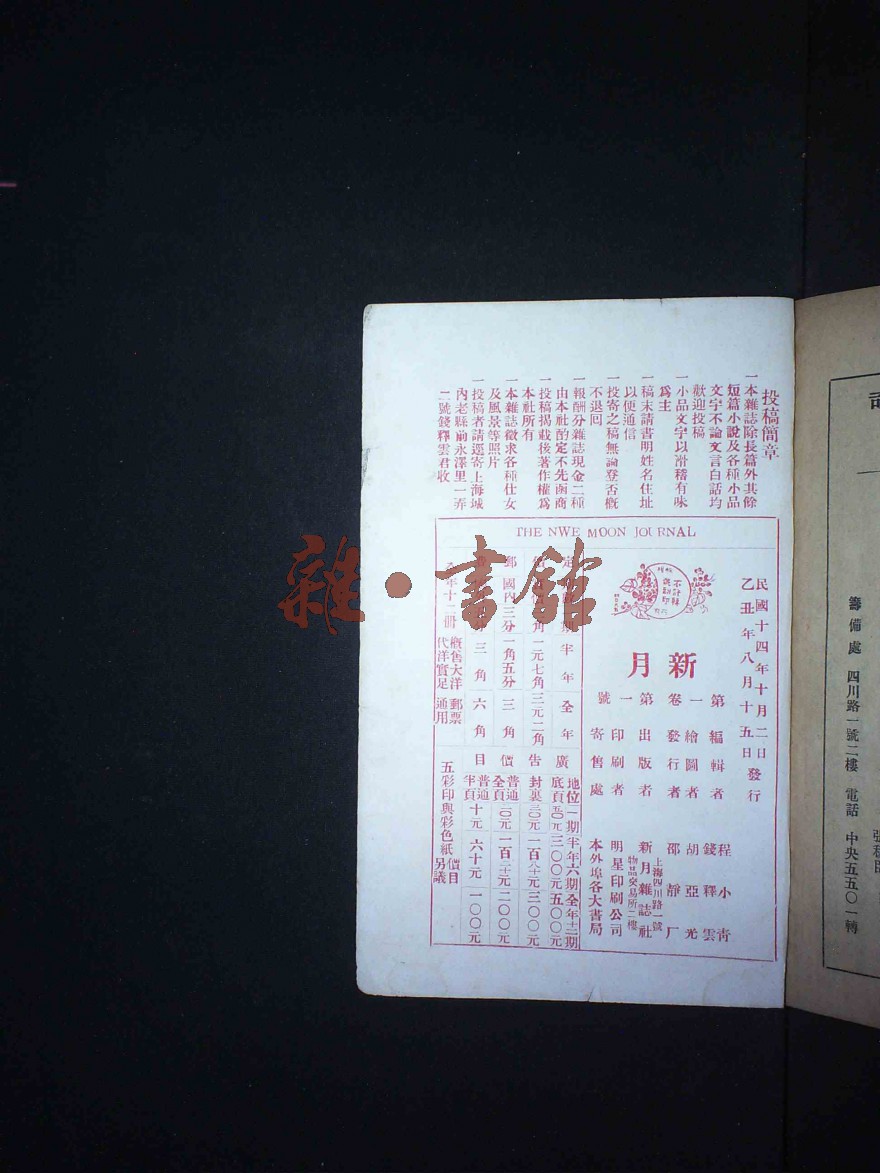 投稿簡章
一本雜誌除長篇外其餘
短篇小說及各種小品
文字不論文言白話均
歡迎投稿
一小品文字以滑稽有味
爲主
一稿末請書明姓名住址
以便通信
一投寄之稿無論登否概
不退回
一報酬分雜誌現金二種
由本社酌定不先函商
一投稿揭載後著作權爲
本社所有
一本雜誌徵求各種仕女
及風景等照片
一投稿者請逕寄上海城
內老縣前永澤里一弄
二號錢釋雲君收
THE NWE MOON JOURNAL
民國十四年十月二日
乙丑年八月十五日發行
新月
第一卷第一號
編輯者 程小青 錢釋雲
繪圖者 胡亞光
發行者 邵靜厂
出版者 新月雜誌社
上海四川路一號
物品交易所二樓
印刷者 明星印刷公司
寄售處 本外埠各大書局
半年 全年
一元七角 三元二角
郵 國內三分 一角五分 三角
三角 六角
年十二冊
概售大洋
代洋實足
郵票
通用
廣告價目
地位 一期 半年六期 全年十二期
底頁 五〇元 三〇〇元 五〇〇元
封裏 三〇元 一百八十元 三〇〇元
普通全頁 二〇元 一百二十元 二〇〇元
普通半頁 十元 六十元 一〇〇元
五彩印與彩色紙價目另議
雜·書館
籌備處 四川路一號二樓 電話 中央五五〇一轉